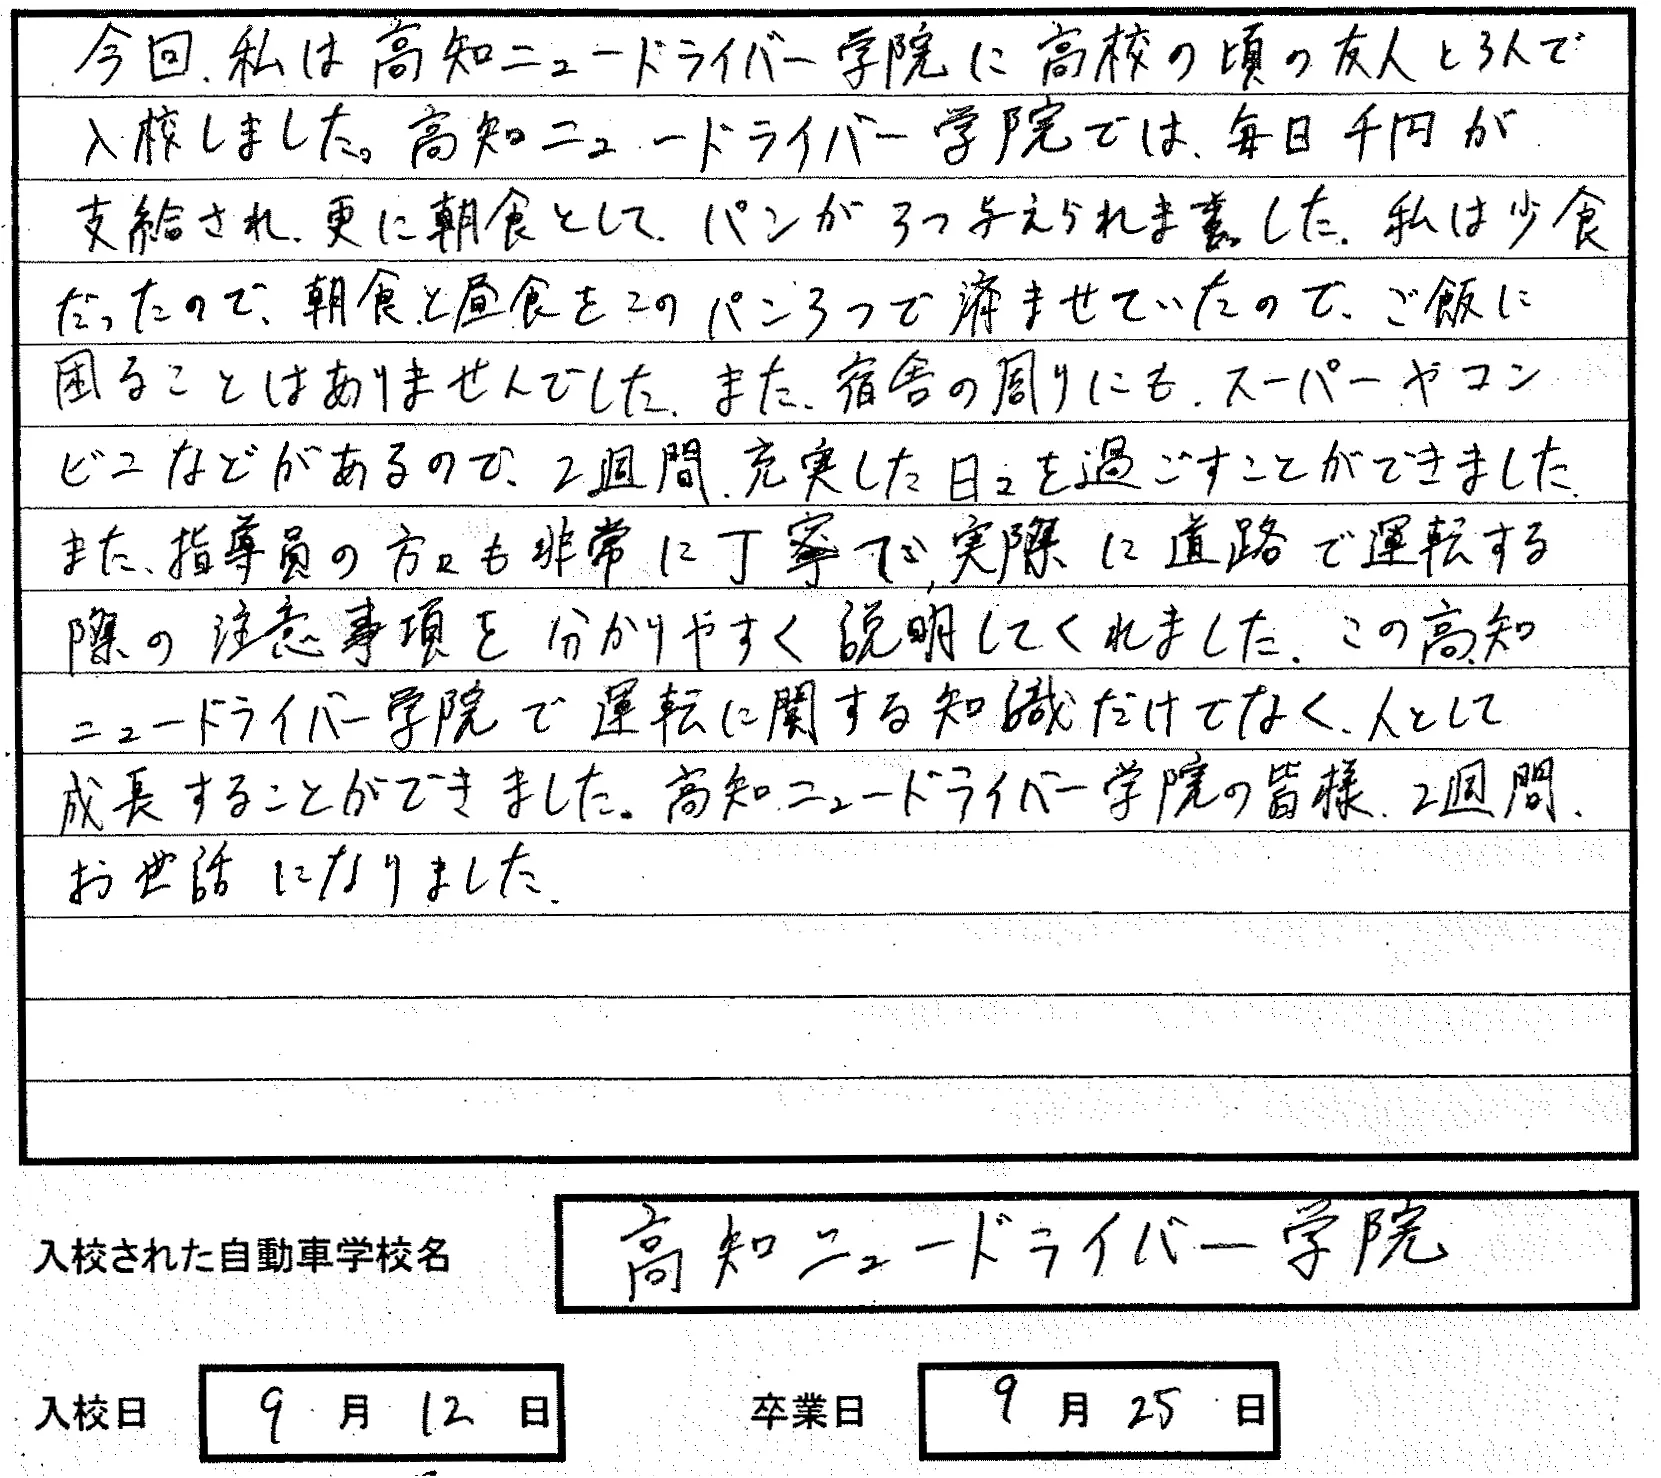 今回、私は高知ニュードライバー学院に高校の頃の友人と3人で
入校しました。高知ニュードライバー学院では、毎日千円が
支給され、更に朝食として、パンが3つ与えられました。私は少食
だったので、朝食と昼食をこのパン3つで済ませていたので、ご飯に
困ることはありませんでした。また、宿舎の周りにも、スーパーやコン
ビニなどがあるので、2週間、充実した日々を過ごすことができました。
また、指導員の方々も非常に丁寧で、実際に道路で運転する
際の注意事項を分かりやすく説明してくれました。この高知
ニュードライバー学院で運転に関する知識だけでなく、人として
成長することができました。高知ニュードライバー学院の皆様、2週間、
お世話になりました。
入校された自動車学校名 高知ニュードライバー学院
入校日 9月12日 卒業日 9月25日